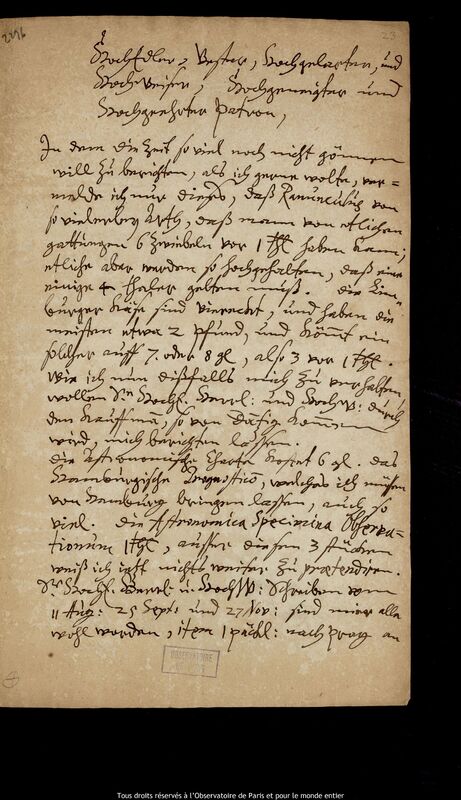 2226
23
HochEdler, Vester, Hochgelarter, und
Hochweiser, Hochgeneigter und
Hochgeehrter Patron,
In dem die Zeit so viel noch nicht gönnen
will zu berichten, als ich gerne wolte, ver=
melde ich nur dieses, daß Ranunculus von
so vielerley Arth, daß mann von etlichen
gattungen 6 Zwiebeln vor 1 thl haben kann;
etliche aber werden so hochgehalten, daß eine
einige 4 thaler gelten muß. die Lim=
burger Käse sind viereckt, und haben die
meisten etwa 2 pfund, und kömmt ein
solcher auff 7 oder 8 gl, also 3 vor 1 thl.
Wie ich nun dißfalls mich zu verhalten,
wollen Se HochE. Herrl: und HochW: durch
den Kauffmann, so von dañen kommen
wird, mich berichten lassen.
die Astronomische Charta kostet 6 gl. das
Hamburgische Prognosticon, welches ich müssen
von Hamburg bringen lassen, auch so
viel. die Astronomica Specimina Observa=
tionum 1 thl, ausser diesen 3 stücken
weiß ich itzt nichts weiter zu prætendiren.
Sr HochE. Herrl: u. HochW: Schreiben vom
11 Aug: 25 Septr und 27 Nov: sind mir alle
wohl worden, item 1 päckl: nach Prag an
OBSERVATOIRE
Tous droits réservés à l'Observatoire de Paris et pour le monde entier